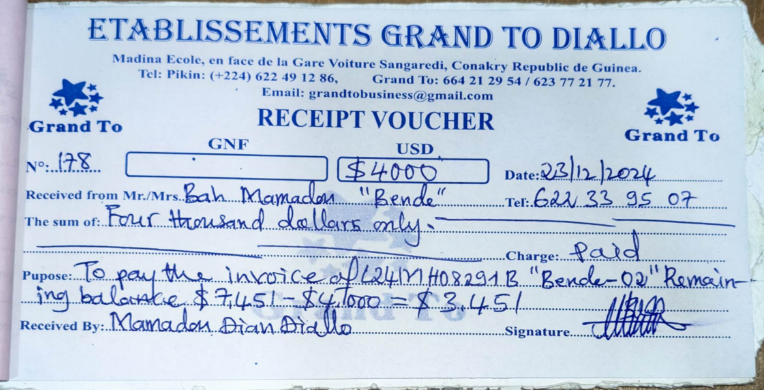 ETABLISSEMENTS GRAND TO DIALLO
Madina Ecole, en face de la Gare Voiture Sangaredi, Conakry Republic de Guinea.
Tel: Pikin: (+224) 622 49 12 86, Grand To: 664 21 29 54 / 623 77 21 77.
Email: grandtobusiness@gmail.com
Grand To RECEIPT VOUCHER Grand To
GNF USD
N°: 178 $4000 Date: 23/12/2024
Received from Mr./Mrs. Bah Mamadou "Bende" Tel: 622 33 95 07
The sum of: Four thousand dollars only.
Charge: paid
Pupose: To pay the invoice of L24MH08291B "Bende-02" Remain-
ing balance $7,451 - $4,000 = $3,451
Received By: Mamadou Dian Diallo Signature